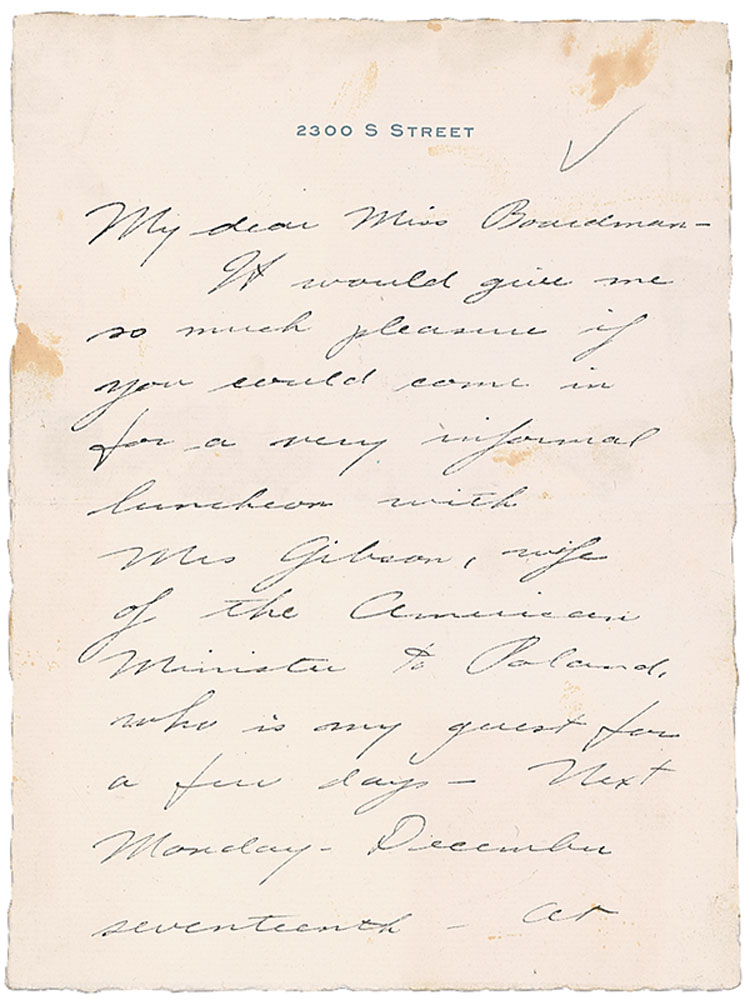 2300 S STREET
My dear Miss Boardman-
It would give me
so much pleasure if
you could come in
for a very informal
luncheon with
Mrs Gibson, wife
of the American
Minister to Poland,
who is my guest for
a few days - Next
Monday - December
seventeenth - at